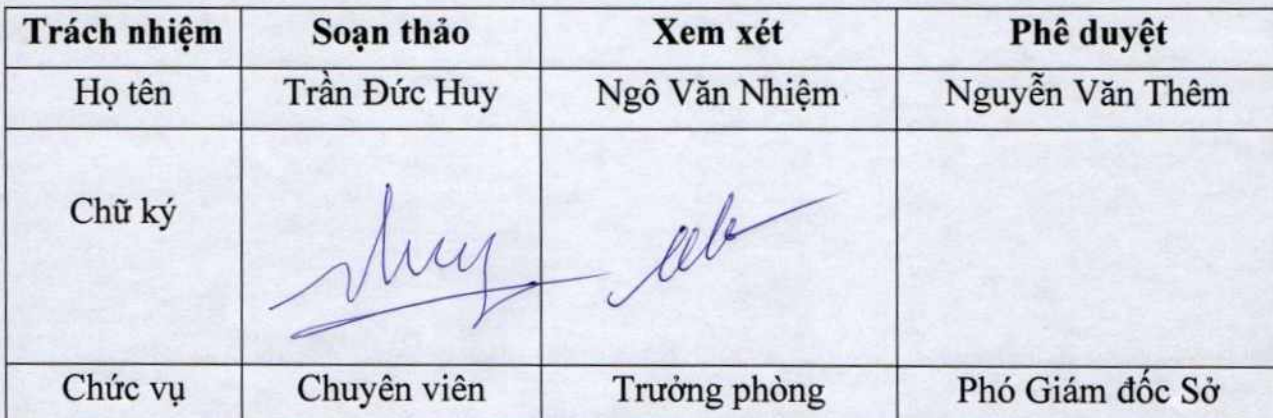 Trách nhiệm Soạn thảo Xem xét Phê duyệt
Họ tên Trần Đức Huy Ngô Văn Nhiệm Nguyễn Văn Thêm
Chữ ký Huy
Chức vụ Chuyên viên Trưởng phòng Phó Giám đốc Sở